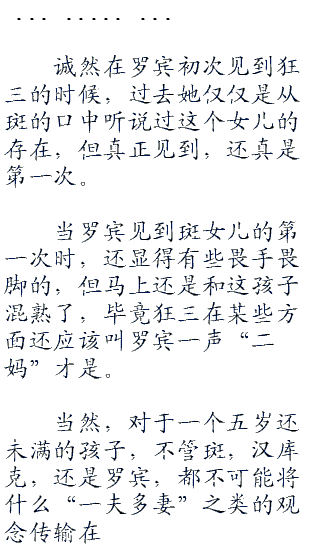 … …… …
诚然在罗宾初次见到狂
三的时候，过去她仅仅是从
斑的口中听说过这个女儿的
存在，但真正见到，还真是
第一次。
当罗宾见到斑女儿的第
一次时，还显得有些畏手畏
脚的，但马上还是和这孩子
混熟了，毕竟狂三在某些方
面还应该叫罗宾一声“二
妈”才是。
当然，对于一个五岁还
未满的孩子，不管斑，汉库
克，还是罗宾，都不可能将
什么“一夫多妻”之类的观
念传输在